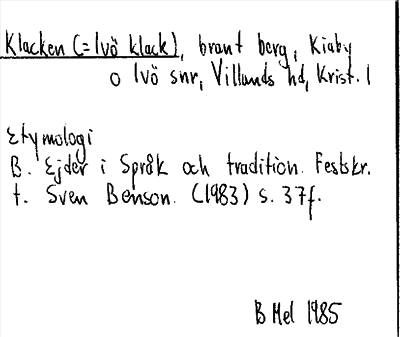 Klacken (=Ivö klack), brant berg, Kiaby
o Ivö snr, Villands hd, Krist. l
Etymologi
B. Ejder i Språk och tradition. Festskr.
t. Sven Benson. (1983) s. 37f.
B Mel 1985